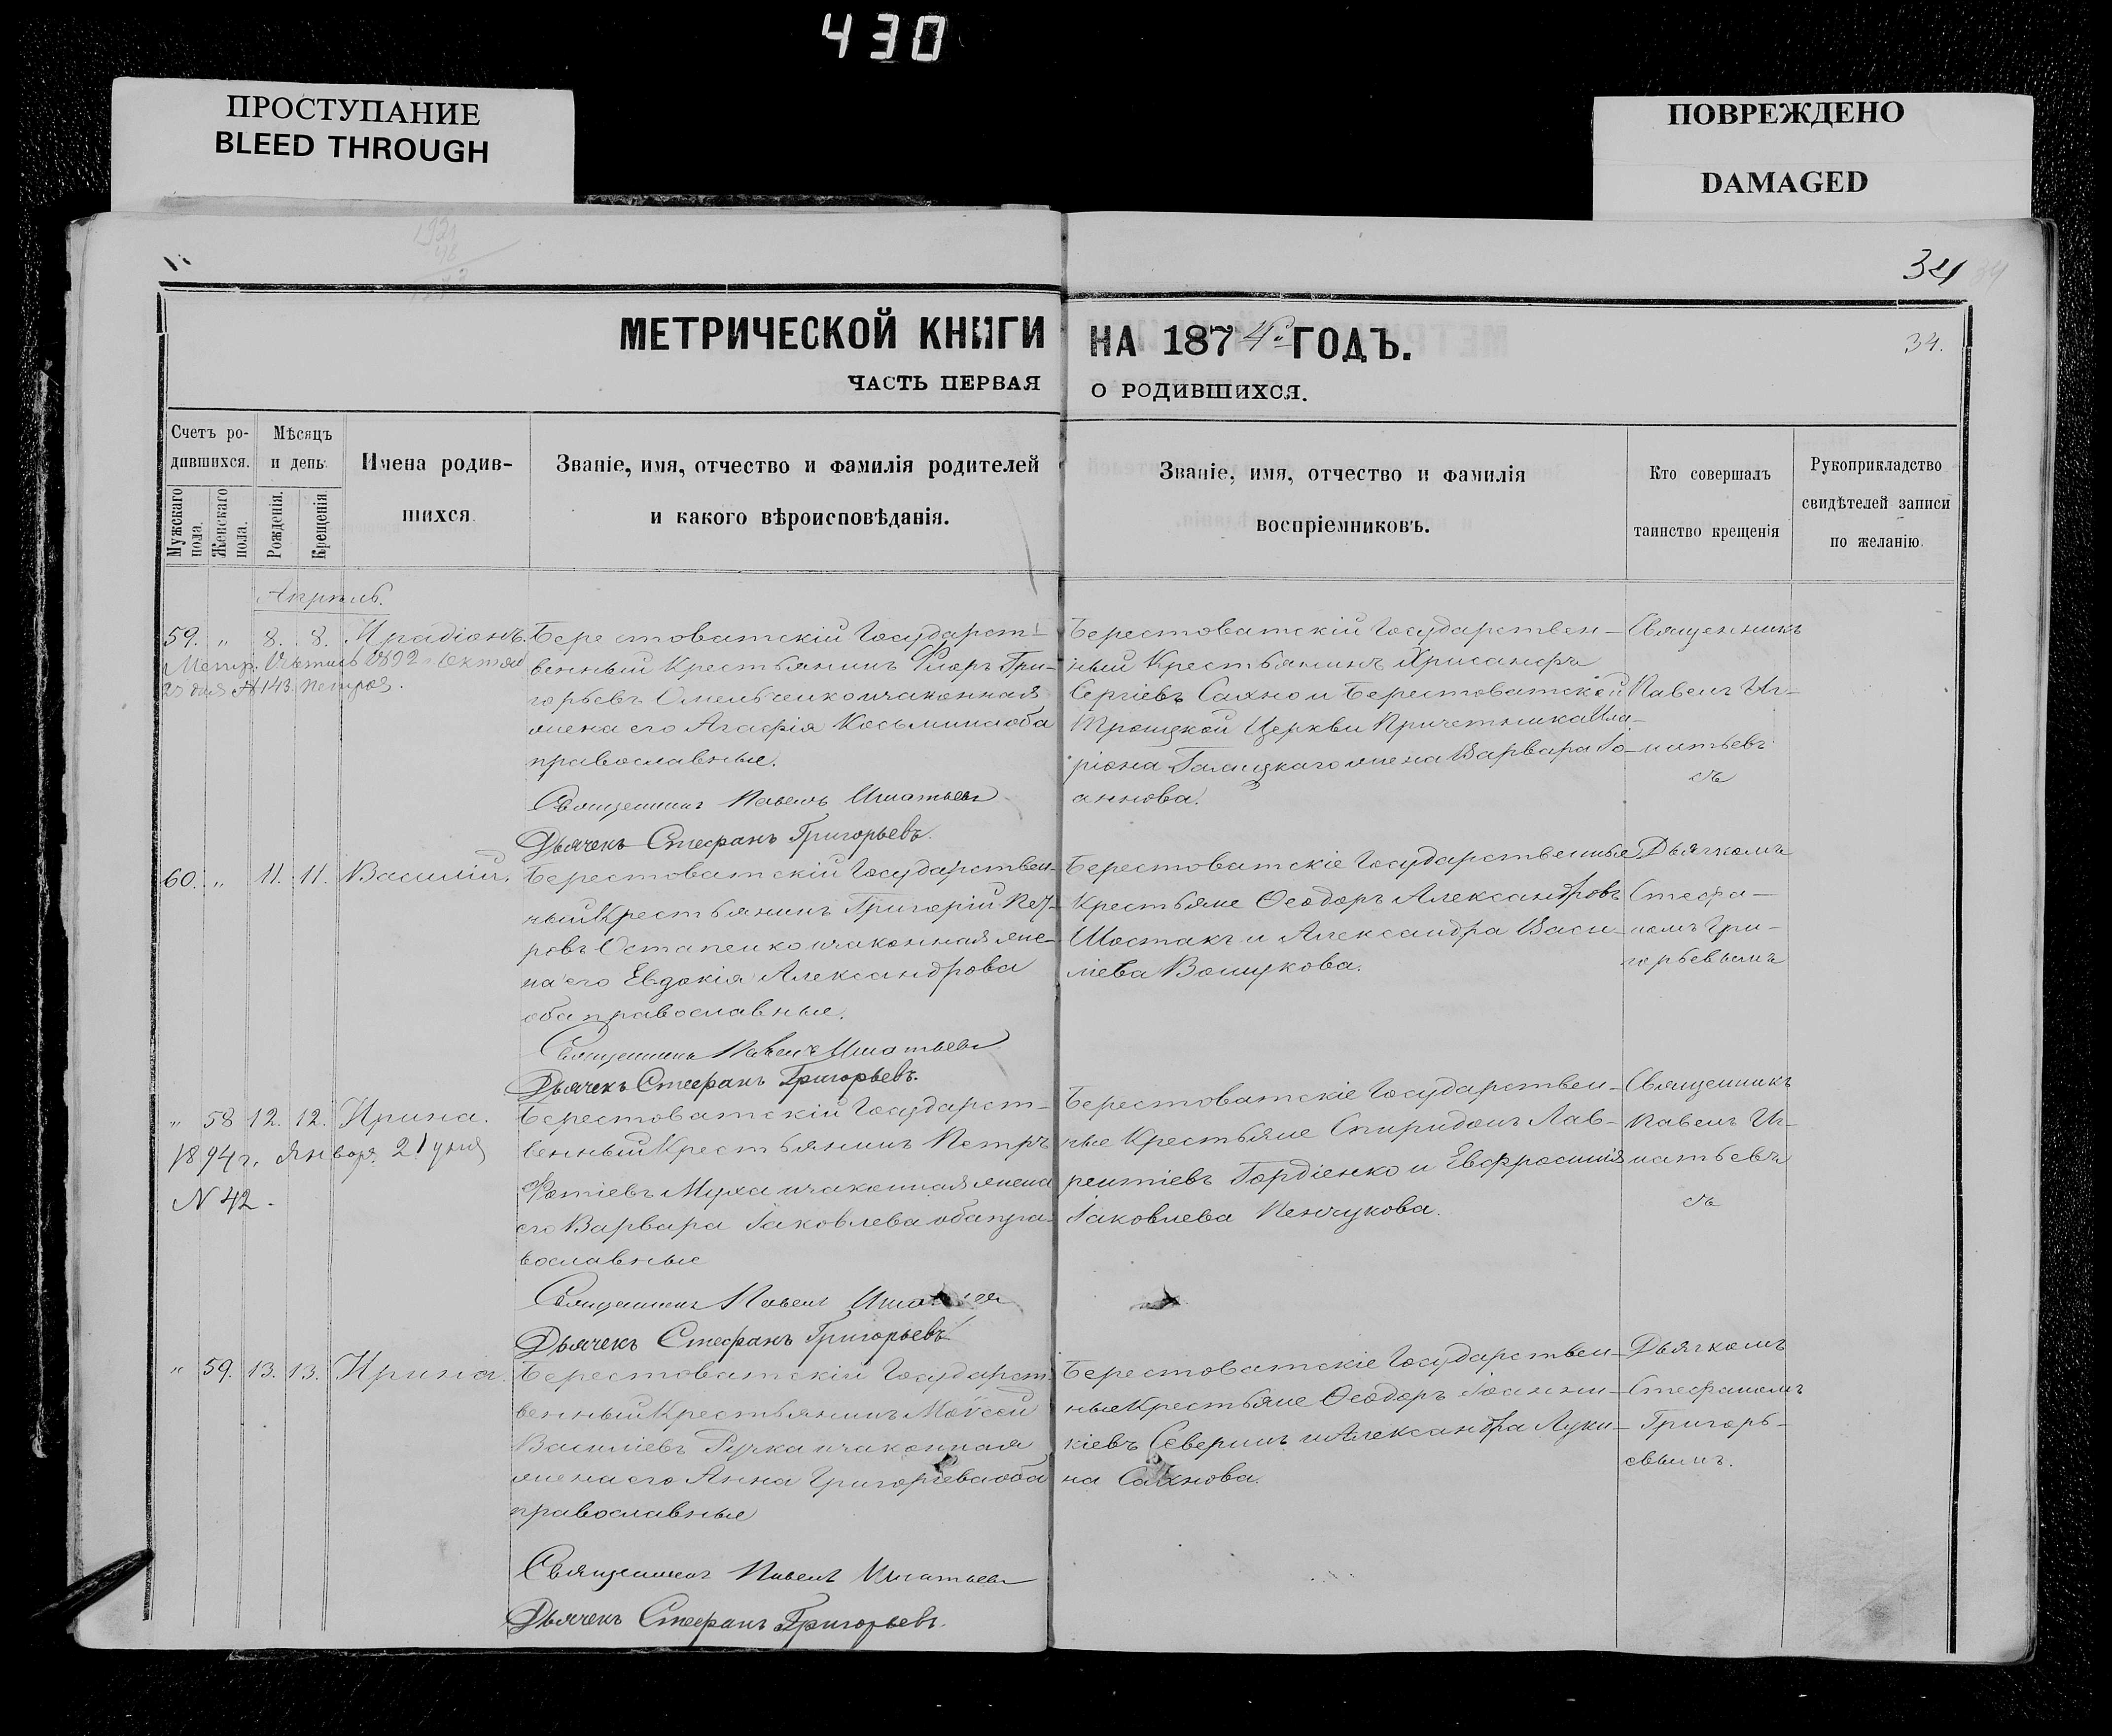 430
ПРОСТУПАНИЕ
BLEED THROUGH
ПОВРЕЖДЕНО
DAMAGED
34
34.
МЕТРИЧЕСКОЙ КНИГИ НА 1874 ГОДЪ.
ЧАСТЬ ПЕРВАЯ О РОДИВШИХСЯ.
Счетъ ро-
дившихся.
Мужскаго пола.
Женскаго пола.
Мѣсяцъ
и день.
Рожденія.
Крещенія.
Имена родив-
шихся
Званіе, имя, отчество и фамилія родителей
и какого вѣроисповѣданія.
Званіе, имя, отчество и фамилія
воспріемниковъ.
Кто совершалъ
таинство крещенія
Рукоприкладство
свидѣтелей записи
по желанію.
Апрѣль.
59. „ 8. 8. Иродіонъ.
Метр. 1892
№ 143.
Берестоватскій Государст-
венный Крестьянинъ Флоръ Гри-
горьевъ Омельченко и законная
жена его Агафія Косьмина оба
православные.
Священникъ Павелъ Игнатьевъ
Дьячекъ Стефанъ Григорьевъ.
Берестоватскій Государствен-
ный Крестьянинъ Хрисанфъ
Сергіевъ Сахно и Берестоватской
Троицкой Церкви Причетника Ила-
ріона Галицкаго жена Варвара Іо-
аннова.
Священникъ
Павелъ Иг-
натьевъ
съ
60. „ 11. 11. Василій.
Берестоватскій Государствен-
ный Крестьянинъ Григорій Пет-
ровъ Остапенко и законная же-
на его Евдокія Александрова
оба православные.
Священникъ Павелъ Игнатьевъ
Дьячекъ Стефанъ Григорьевъ.
Берестоватскіе Государственные
Крестьяне Ѳеодоръ Александровъ
Шостакъ и Александра Васи-
ліева
Дьячкомъ
Стефа-
номъ Гри-
горьевымъ
„ 58 12. 12. Ирина.
1894 г. Января 21 дня
N 42.
Берестоватскій Государст-
венный Крестьянинъ Петръ
Фотіевъ Муха и законная жена
его Варвара Іаковлева оба пра-
вославные
Священникъ Павелъ
Дьячекъ Стефанъ Григорьевъ
Берестоватскіе Государствен-
ные Крестьяне Спиридонъ Лав-
рентіевъ Гордіенко и Евфросинія
Іаковлева Пенчукова.
Священникъ
Павелъ Иг-
натьевъ
съ
„ 59. 13. 13. Ирина.
Берестоватскій Государст-
венный Крестьянинъ Моѵсей
Василіевъ Ручка и законная
жена его Анна Григоріева оба
православные
Священникъ Павелъ Игнатьевъ
Дьячекъ Стефанъ Григорьевъ.
Берестоватскіе Государствен-
ные Крестьяне Ѳеодоръ Іоанни-
кіевъ Северинъ и Александра Луки-
на Сахнова.
Дьячкомъ
Стефаномъ
Григорь-
евымъ.